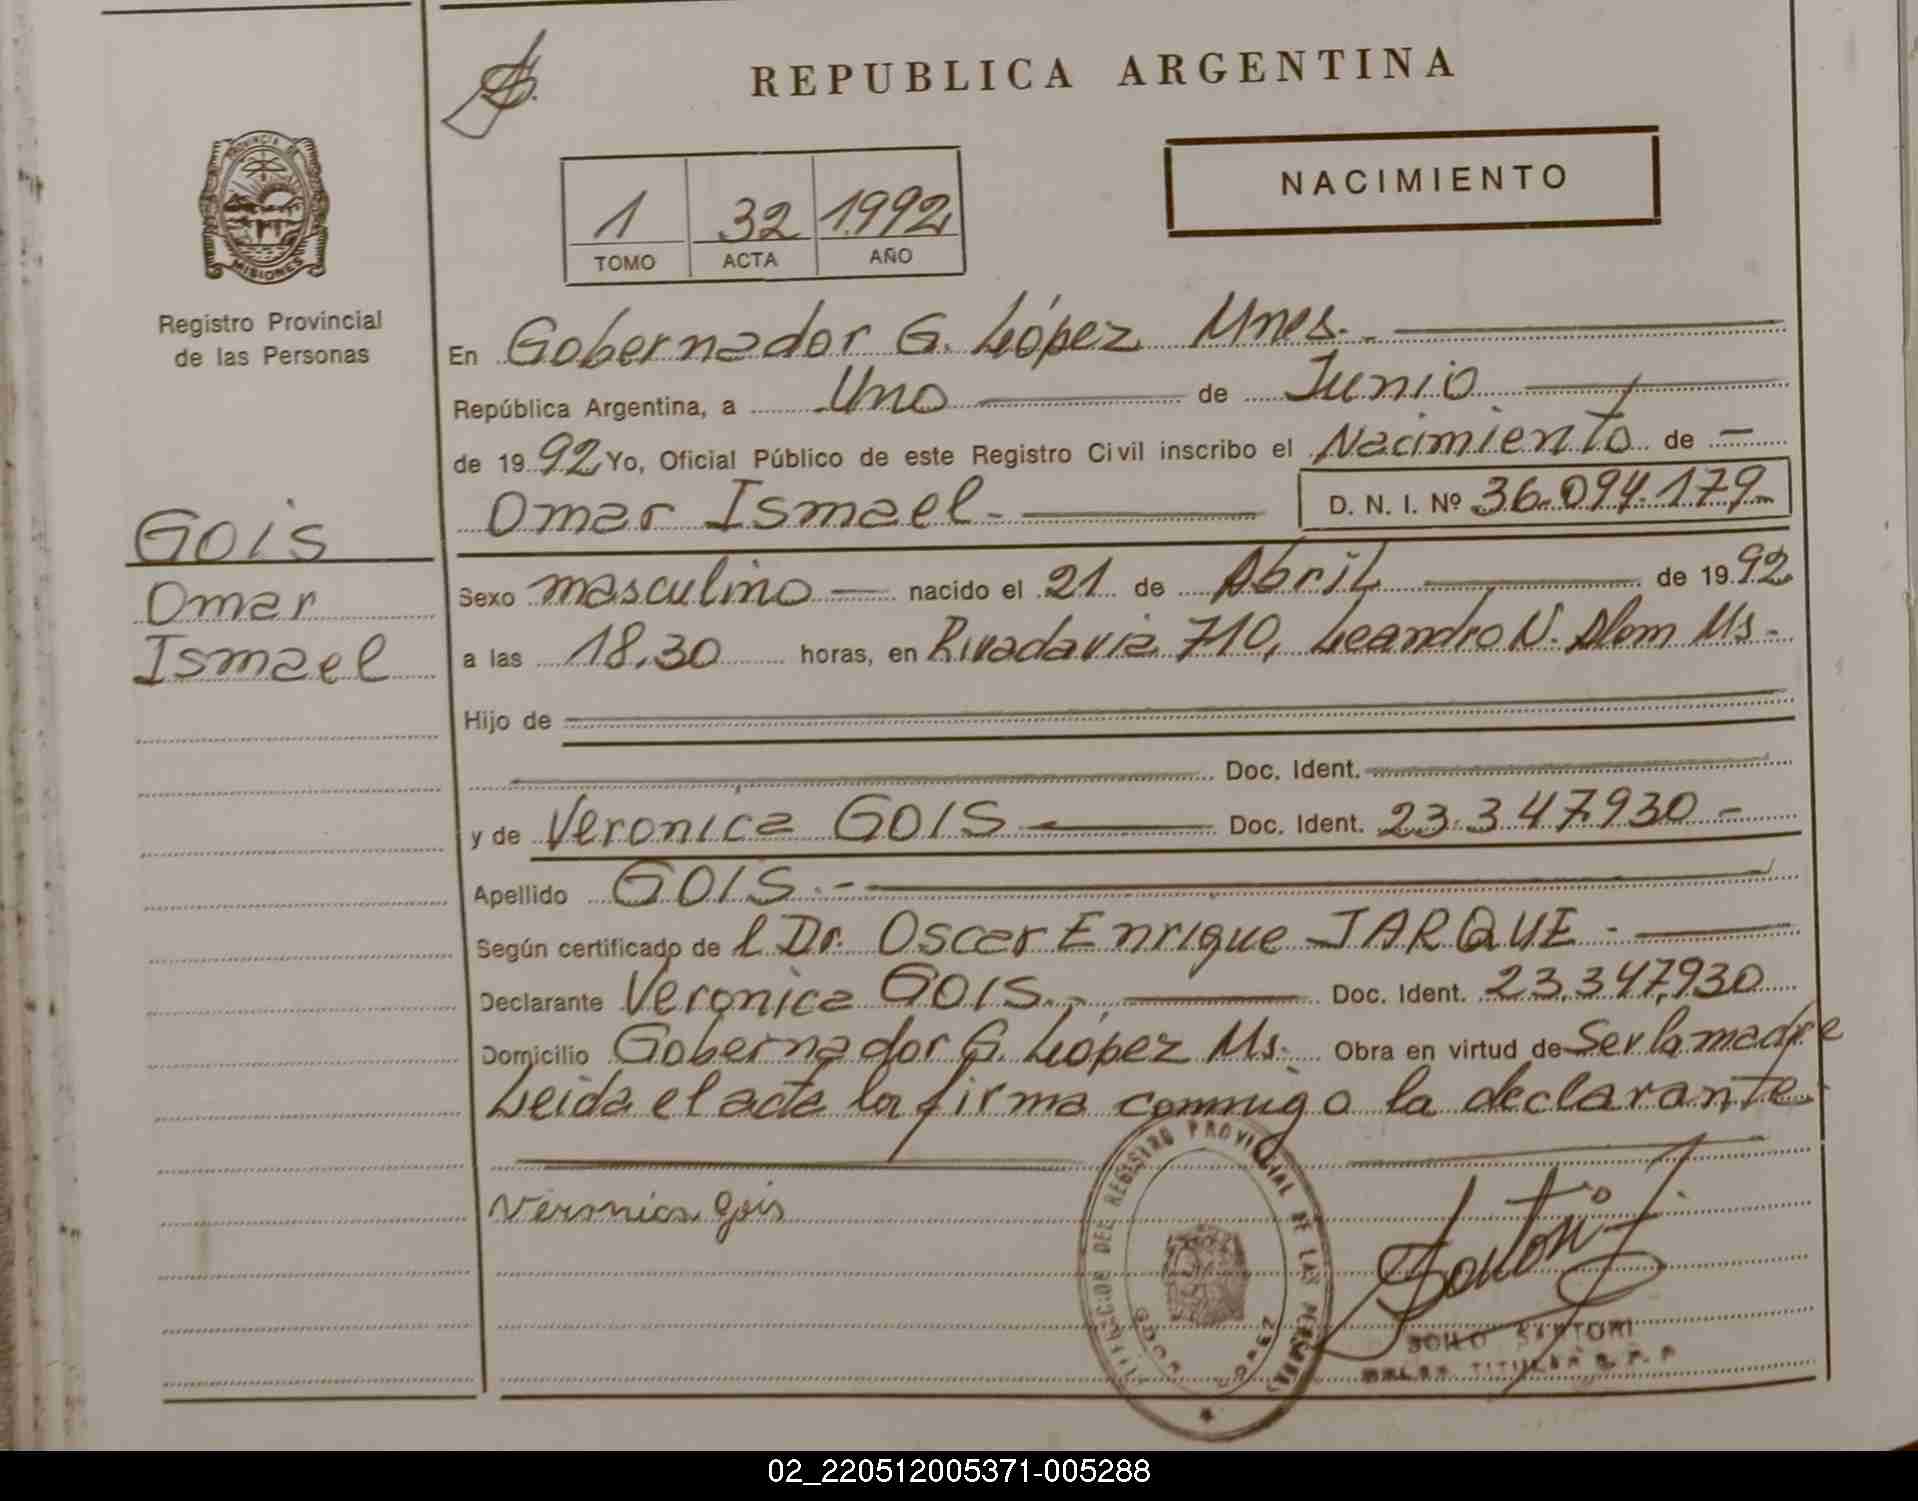 REPUBLICA ARGENTINA
PROVINCIA DE
MISIONES
Registro Provincial
de las Personas
NACIMIENTO
1 32 1992
TOMO ACTA AÑO
En Gobernador G. López Mnes.
República Argentina, a Uno de Junio
de 1992 Yo, Oficial Público de este Registro Civil inscribo el Nacimiento de —
Omar Ismael.- D. N. I. Nº 36.094.179
GOIS
Omar
Ismael
Sexo masculino — nacido el 21 de Abril de 1992
a las 18.30 horas, en Rivadavia 710, Leandro N. Alem Ms.-
Hijo de
Doc. Ident.
y de Veronica GOIS Doc. Ident. 23.347.930 -
Apellido GOIS.-
Según certificado de l Dr. Oscar Enrique JARQUE -
Declarante Veronica GOIS.- Doc. Ident. 23.347.930
Domicilio Gobernador G. López Ms. Obra en virtud de Ser la madre
Leida el acta la firma conmigo la declarante.
Veronica Gois
DEL REGISTRO PROVINCIAL DE LAS PERSONAS
SANTORI
TITULAR R. P. P.
02_220512005371-005288